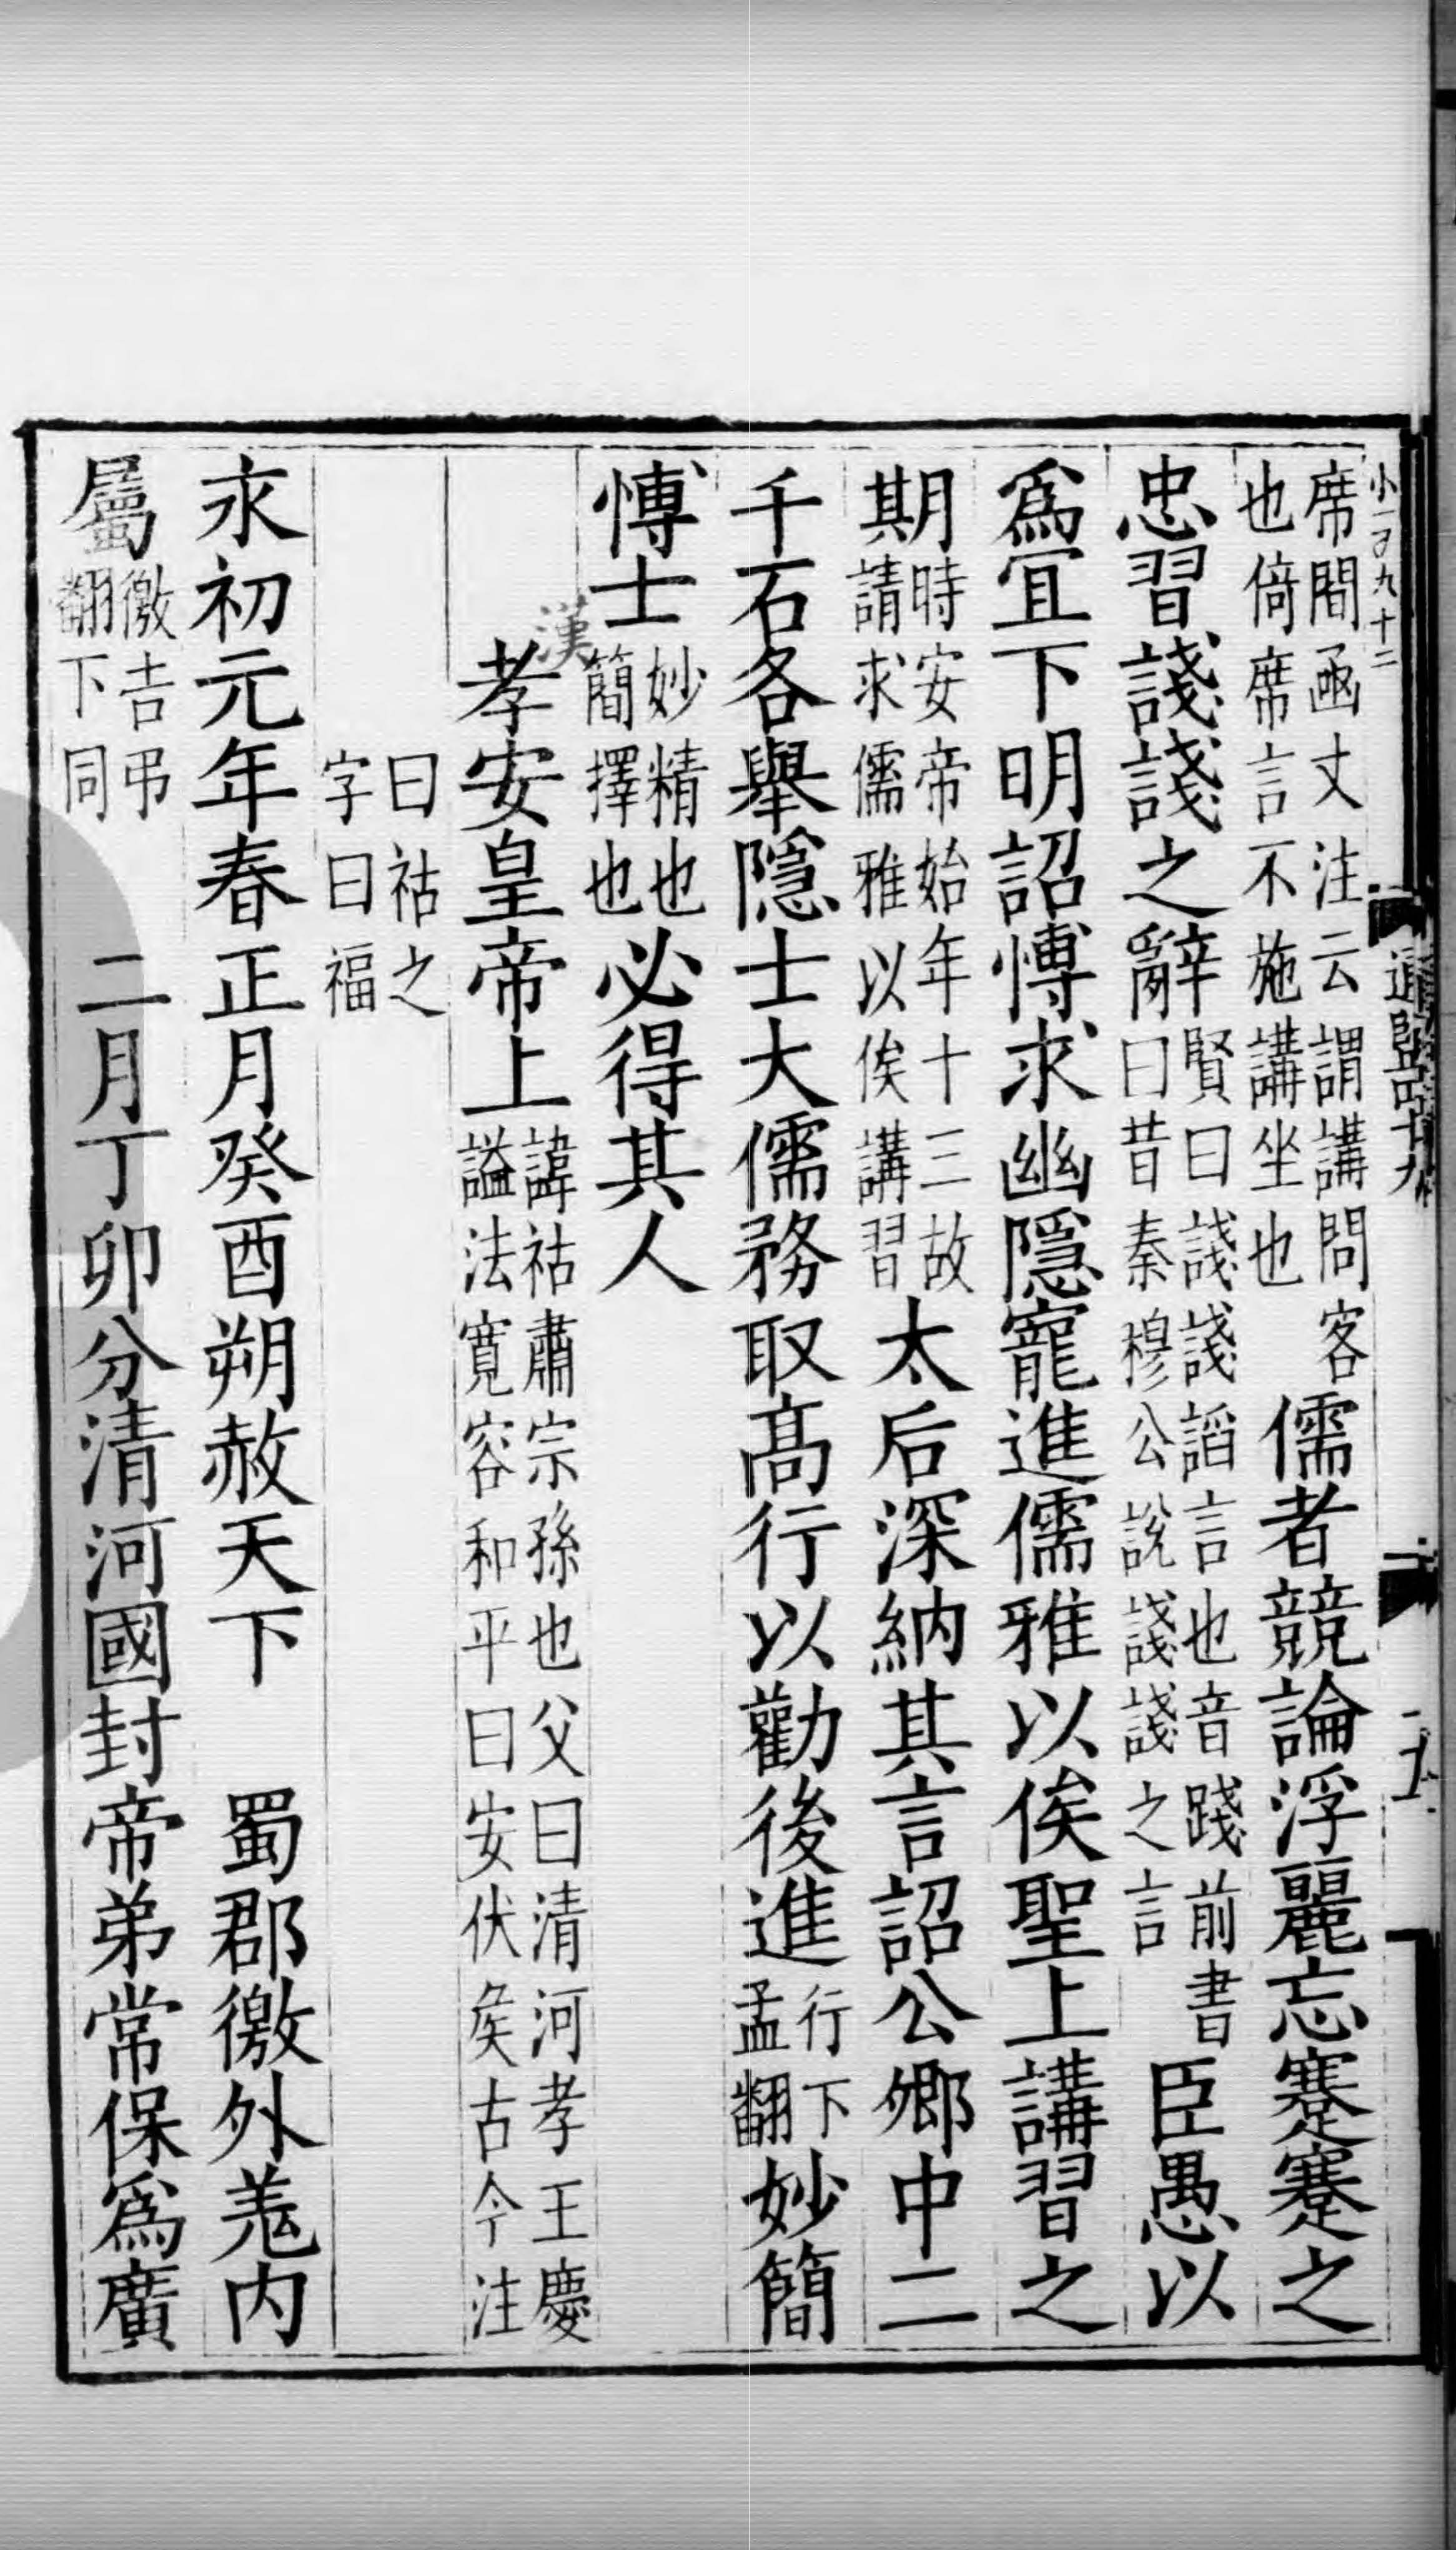 席間函丈注云謂講問客
也倚席言不施講坐也
儒者競論浮麗忘蹇蹇之
忠習諓諓之辭
賢曰諓諓謟言也音踐前書
曰昔秦穆公說諓諓之言
臣愚以
爲宜下明詔博求幽隱寵進儒雅以俟聖上講習之
期
時安帝始年十三故
請求儒雅以俟講習
太后深納其言詔公卿中二
千石各舉隱士大儒務取高行以勸後進
行下
孟翻
妙簡
博士
妙精也
簡擇也
必得其人
漢
孝安皇帝上
諱祜肅宗孫也父曰清河孝王慶
謚法寬容和平曰安伏矦古今注
曰祜之
字曰福
永初元年春正月癸酉朔赦天下 蜀郡徼外羌内
屬
徼吉弔
翻下同
二月丁卯分清河國封帝弟常保爲廣
小一百九十二